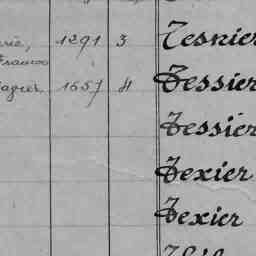 rie, 1291 3 Tesnier
Francoo
1657 4 Tessier
Tessier
Texier
Texier